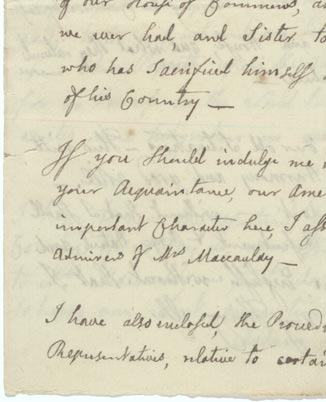 of our House of Commons, a
we ever had, and Sister to
who has Sacrificed himself
of his Country —
If you Should indulge me
your Acquaintance, our Ame
important Character here, I ass
Admirers of Mrs Maccaulay —
I have also enclosed, the Proceed
Representatives, relative to certai